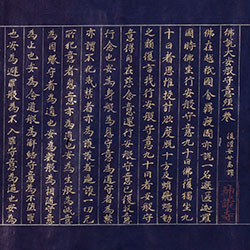 佛說大安般守意經卷
後漢安世高譯
佛在越祇國舍羈瘦國亦說一名遮匿迦羅
國時佛坐行安般守意九十日佛復獨坐九
十日者思惟校計欲度脫十方人及蜎飛蠕動
之類復言我行安般守意九十日者安般守
意得自在慈念意還行安般守意已復收意
行念也安為身般為息守意為道守者為禁
亦謂不犯戒禁者亦為護護者遍護一切无
所犯意者息意亦為道也安為生般為滅意
為因緣守者為道也安為數般為相隨守意
為止也安為念道般為解結守意為不墮罪
也安為避罪般為不入罪守意為道也安為
神護寺